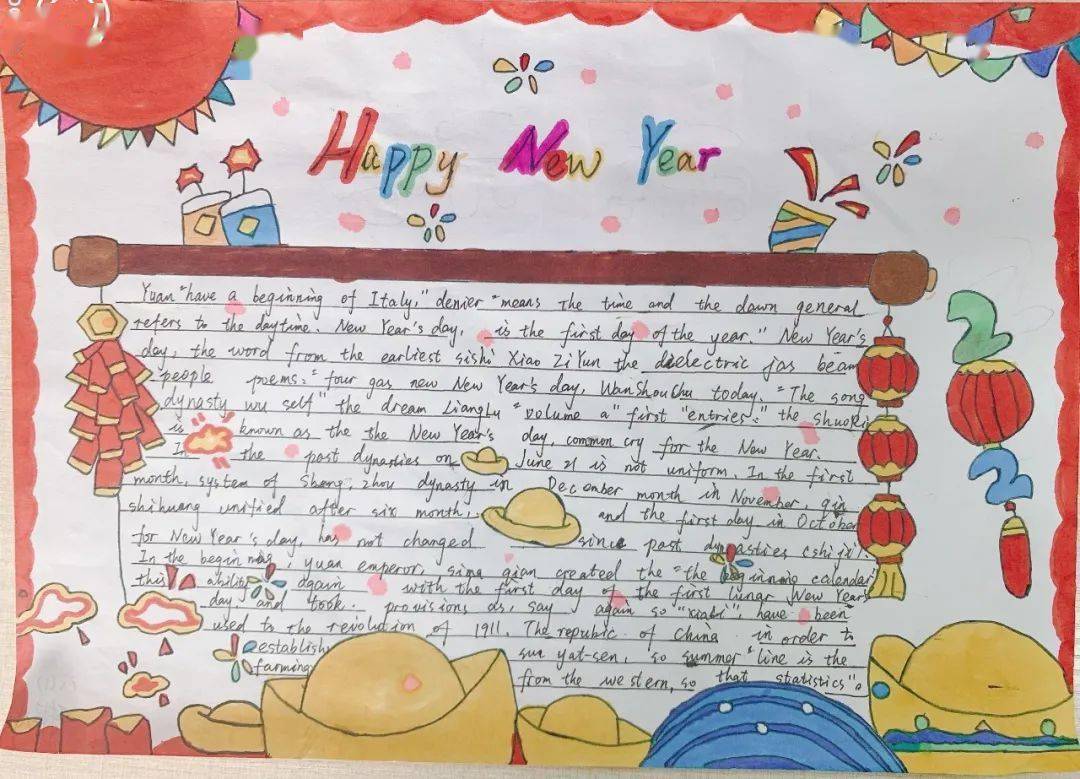 Happy New Year
Yuan "have a beginning of Italy," denier "means The time and the dawn general
refers to the daytime. New Year's day, is the first day of the year." New Year's
day, the word from the earliest sishi Xiao Zi Yun the dielectric jas beam
people poems: "four gas new New Year's day, WanShouChu today. "The song
dynasty wu self "the dream Lianglu "volume a" first "entries:" the ShuoRi
is known as the the New Year's day, common cry for the New Year.
In the past dynasties on June 21 is not uniform. In the first
month, system of Shang, zhou dynasty in December month in November, qin
shihuang unified after six month, and the first day in October
for New Year's day, has not changed since past dynasties (shiji).
In the beginning, yuan emperor, sima qian created the "the beginning calendar
this ability again with the first day of the first lunar New Year's
day and took provisions as, say again so "xiali", have been
used to the revolution of 1911. The repubic of China in order to
establish sun yat-sen, so summer "line is the
farming from the western, so that statistics".
2
2